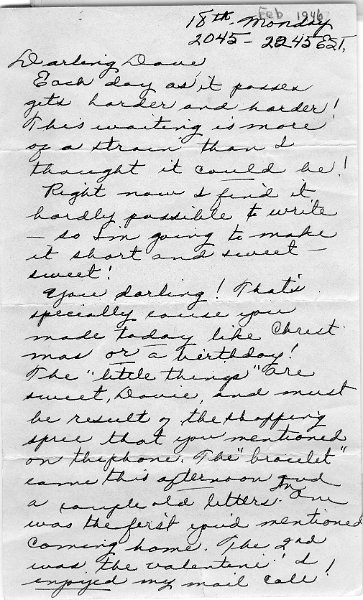 Feb 1946
18th. Monday
2045 - 2245 EST.
Darling Dave,
Each day as it passes
gets harder and harder!
This waiting is more
of a strain than I
thought it could be!
Right now I find it
hardly possible to write
- so I'm going to make
it short and sweet -
sweet!
You darling! That's
specially cause you
made today like Christ
mas or a birthday!
The "little things" are
sweet, Davie, and must
be result of the shopping
spree that you mentioned
on the phone. The "bracelet"
came this afternoon and
a couple old letters. The one
was the first you'd mentioned
coming home. The 2nd
was the valentine! I
enjoyed my mail call!